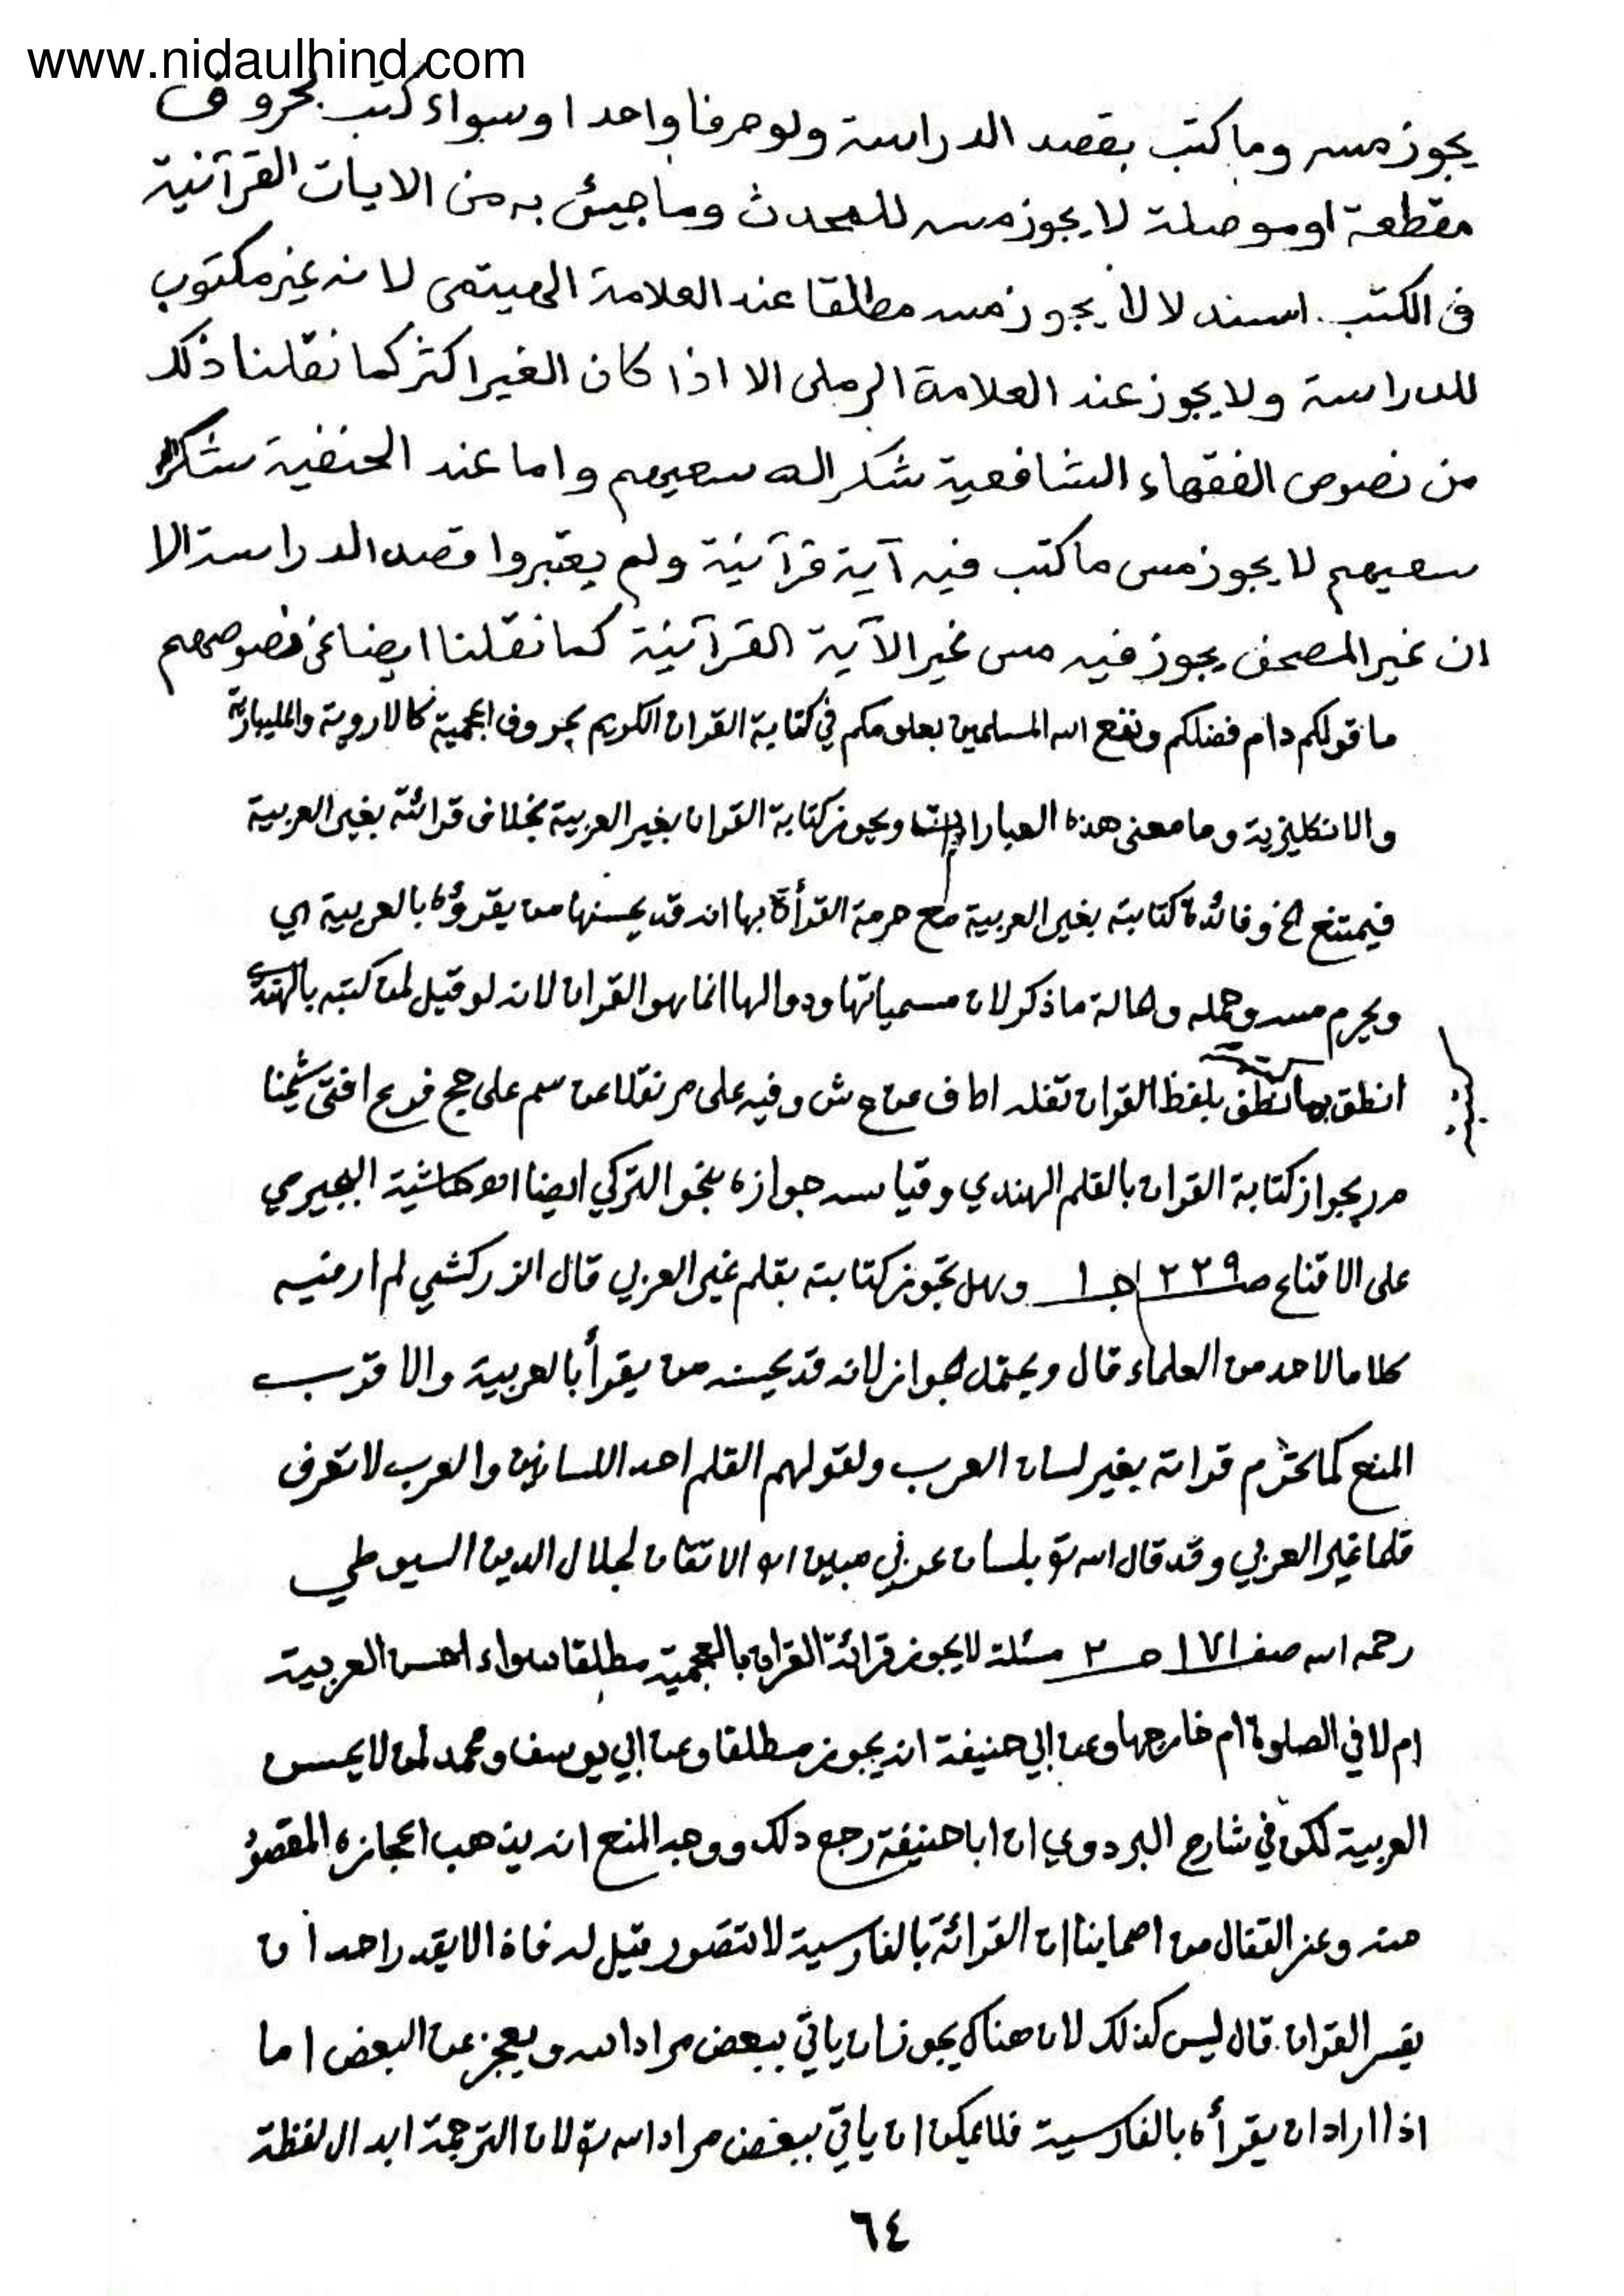 www.nidaulhind.com
يجوز مسه وما كتب بقصد الدراسة ولو حرفا واحدا وسواء كتب بحروف
مقطعة او موصلة لا يجوز مسه للمحدث وما جيئ به من الايات القرآنية
فى الكتب يجوز مسه مطلقا عند العلامة الهيتمى لانه غير مكتوب
للدراسة ولا يجوز عند العلامة الرملى الا اذا كان الغير اكثر كما نقلنا ذلك
من نصوص الفقهاء الشافعية شكر الله سعيهم واما عند الحنفية شكر
سعيهم لا يجوز مس ما كتب فيه آية قرآنية ولم يعتبروا قصد الدراسة الا
ان غير المصحف يجوز فيه مس غير الآية القرآنية كما نقلنا ايضا عن نصوصهم
ما قولكم دام فضلكم ونفع الله المسلمين بعلومكم في كتابة القران الكريم بحروف اعجمية كالاروية والمليبارية
والانكليزية وما معنى هذه العبارات ويجوز كتابة القران بغير العربية بخلاف قرائته بغير العربية
فيمتنع الخ وفائدة كتابته بغير العربية مع حرمة القرأة بها انه قد يحسنها من يقرؤه بالعربية اي
ويحرم مسه وحمله وحالة ما ذكر لان مسمياتها ودوالها انما هو القران لانه لو قيل لمن كتبه بالهندي
انطق بها نطق بلفظ القران نقله اط ف عن ع ش وفيه على م ر نقلا عن سم على حج فرع افتى شيخنا
م ر بجواز كتابة القران بالقلم الهندي وقياسه جوازه بنحو التركي ايضا اهـ حاشية البجيرمي
على الاقناع صـ ٢٣٩ جـ ١ وهل تجوز كتابته بقلم غير العربي قال الزركشي لم ار فيه
كلاما لاحد من العلماء قال ويحتمل الجواز لانه قد يحسنه من يقرأ بالعربية والاقرب
المنع كما تحرم قراته بغير لسان العرب ولقولهم القلم احد اللسانين والعرب لا تعرف
قلما غير العربي وقد قال الله تع بلسان عربي مبين اهـ الاتقان لجلال الدين السيوطي
رحمه الله صفـ ١٧١ جـ ٢ مسئلة لا يجوز قرائة القران بالعجمية مطلقا سواء احسن العربية
ام لا في الصلوة ام خارجها وعن ابي حنيفة انه يجوز مطلقا وعن ابي يوسف ومحمد لمن لا يحسن
العربية لكن في شارح البزدوي ان اباحنيفة رجع ذلك ووجه المنع انه يذهب اعجازه المقصود
منه وعن القفال من اصحابنا ان القرائة بالفارسية لا تتصور قيل له فاذا لا يقدر احد ان
يفسر القران. قال ليس كذلك لان هناك يجوز ان ياتي ببعض مراد الله ويعجز عن البعض اما
اذا اراد ان يقرأه بالفارسية فلا يمكن ان ياتي ببعض مراد الله تع لان الترجمة ابدال لفظة
٦٤